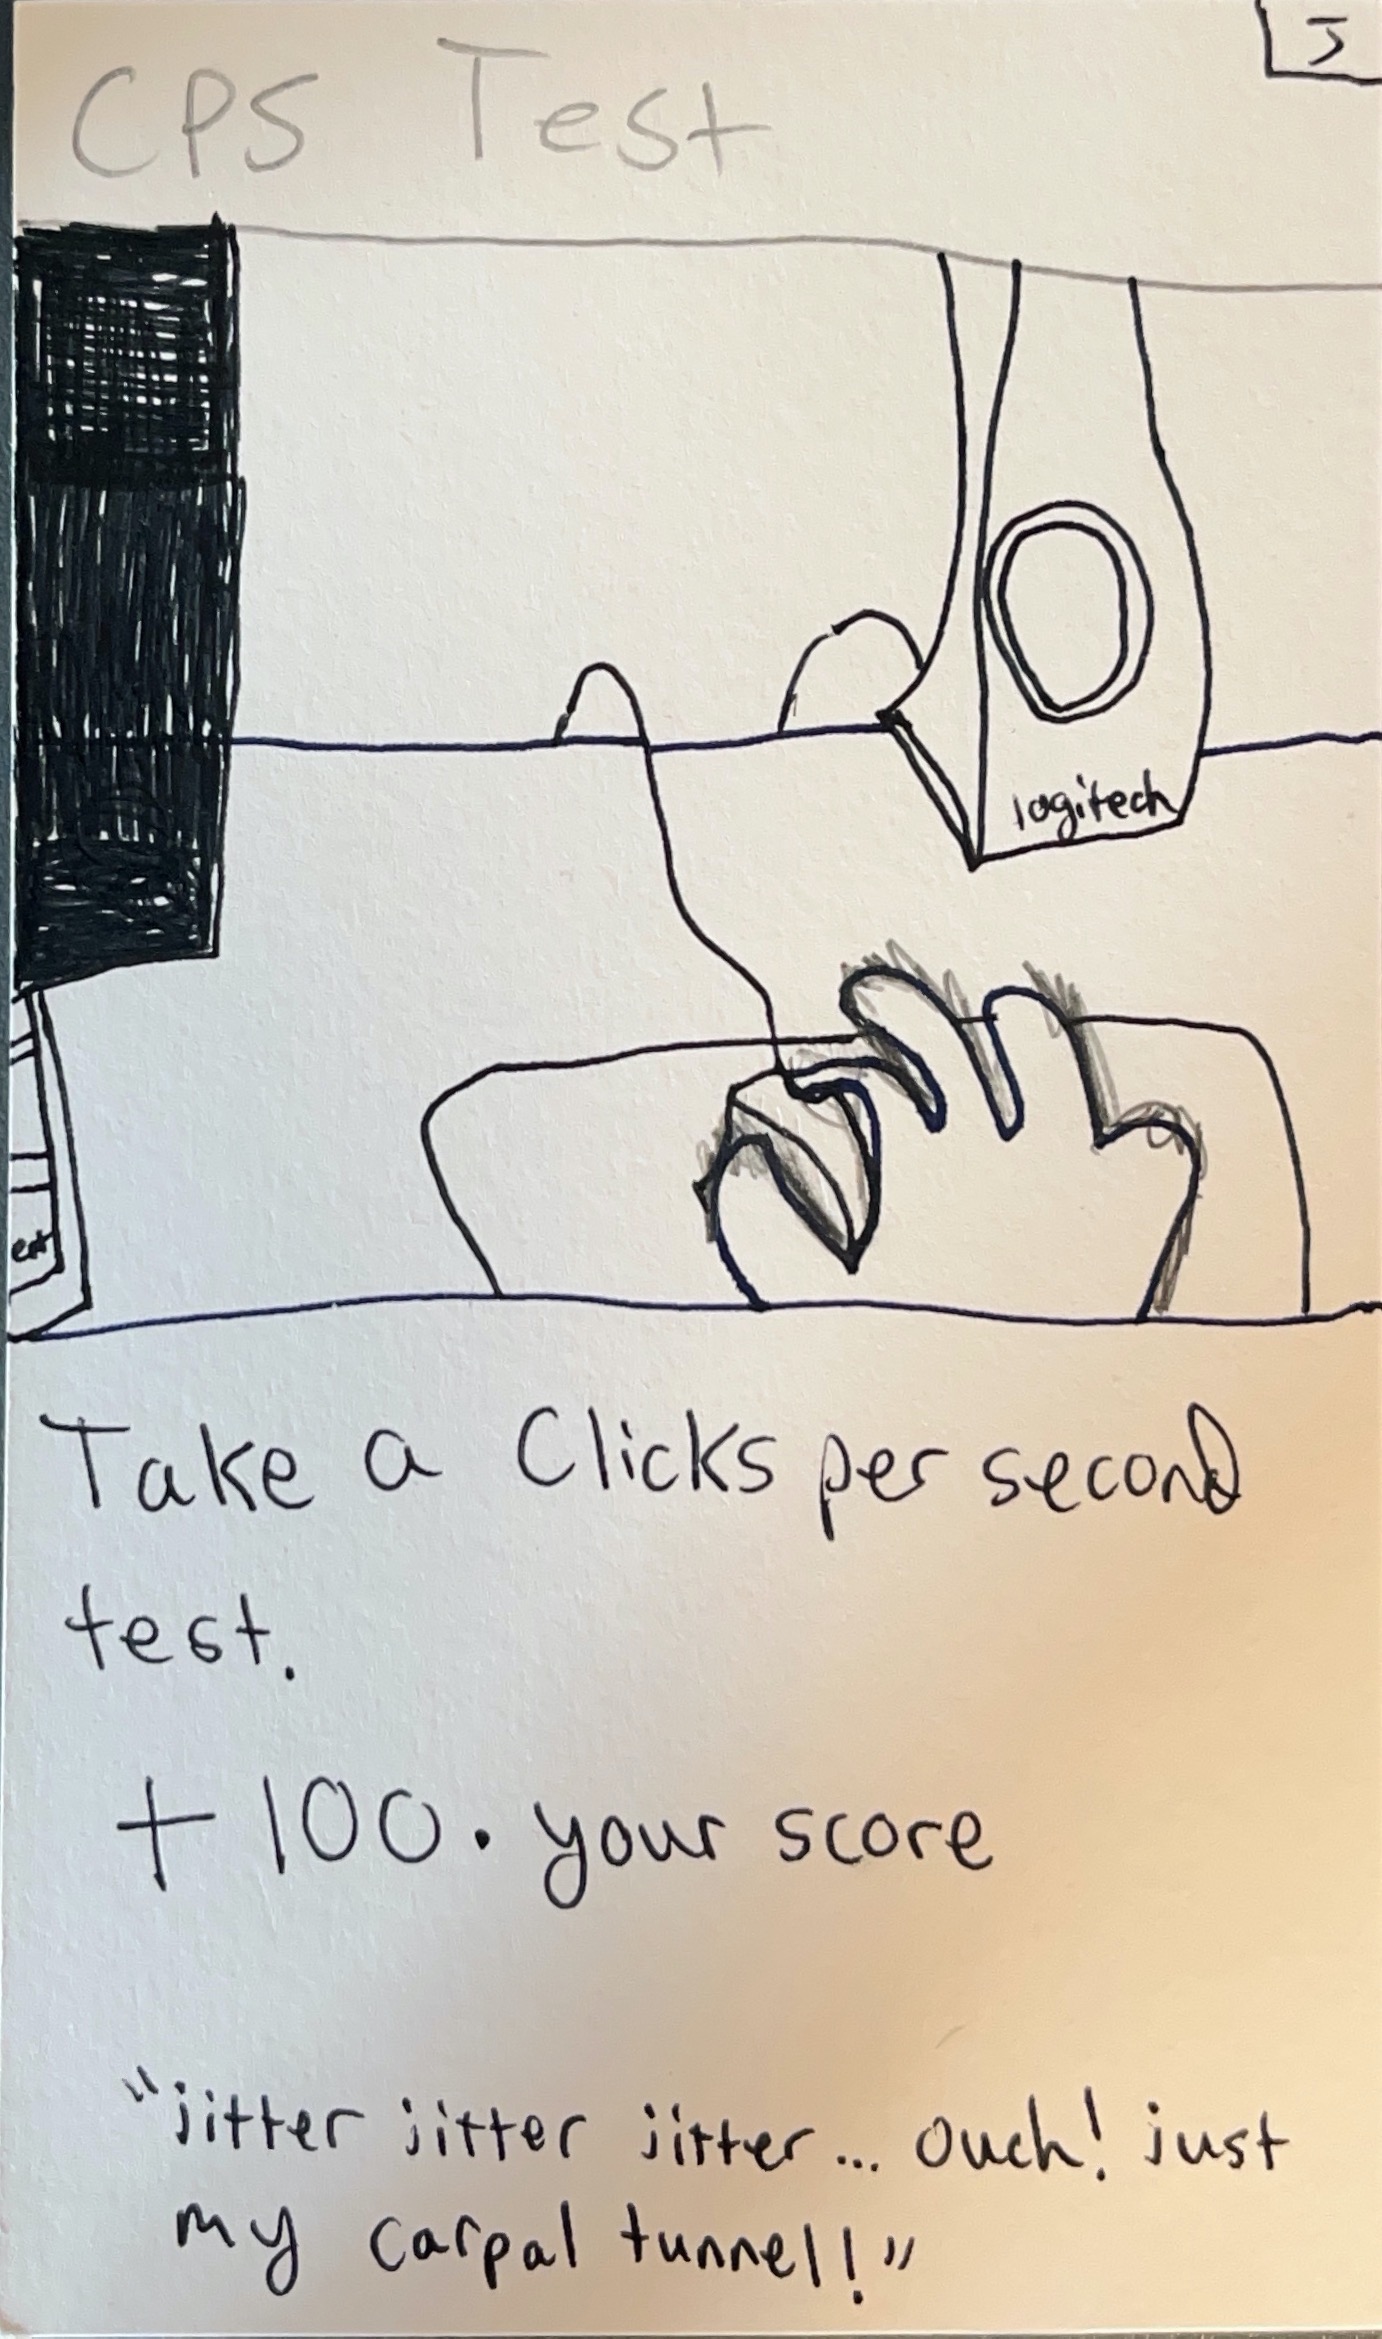 CPS Test
logitech
Take a Clicks per second
test.
+ 100 · your score
"jitter jitter jitter... ouch! just
my carpal tunnel!"